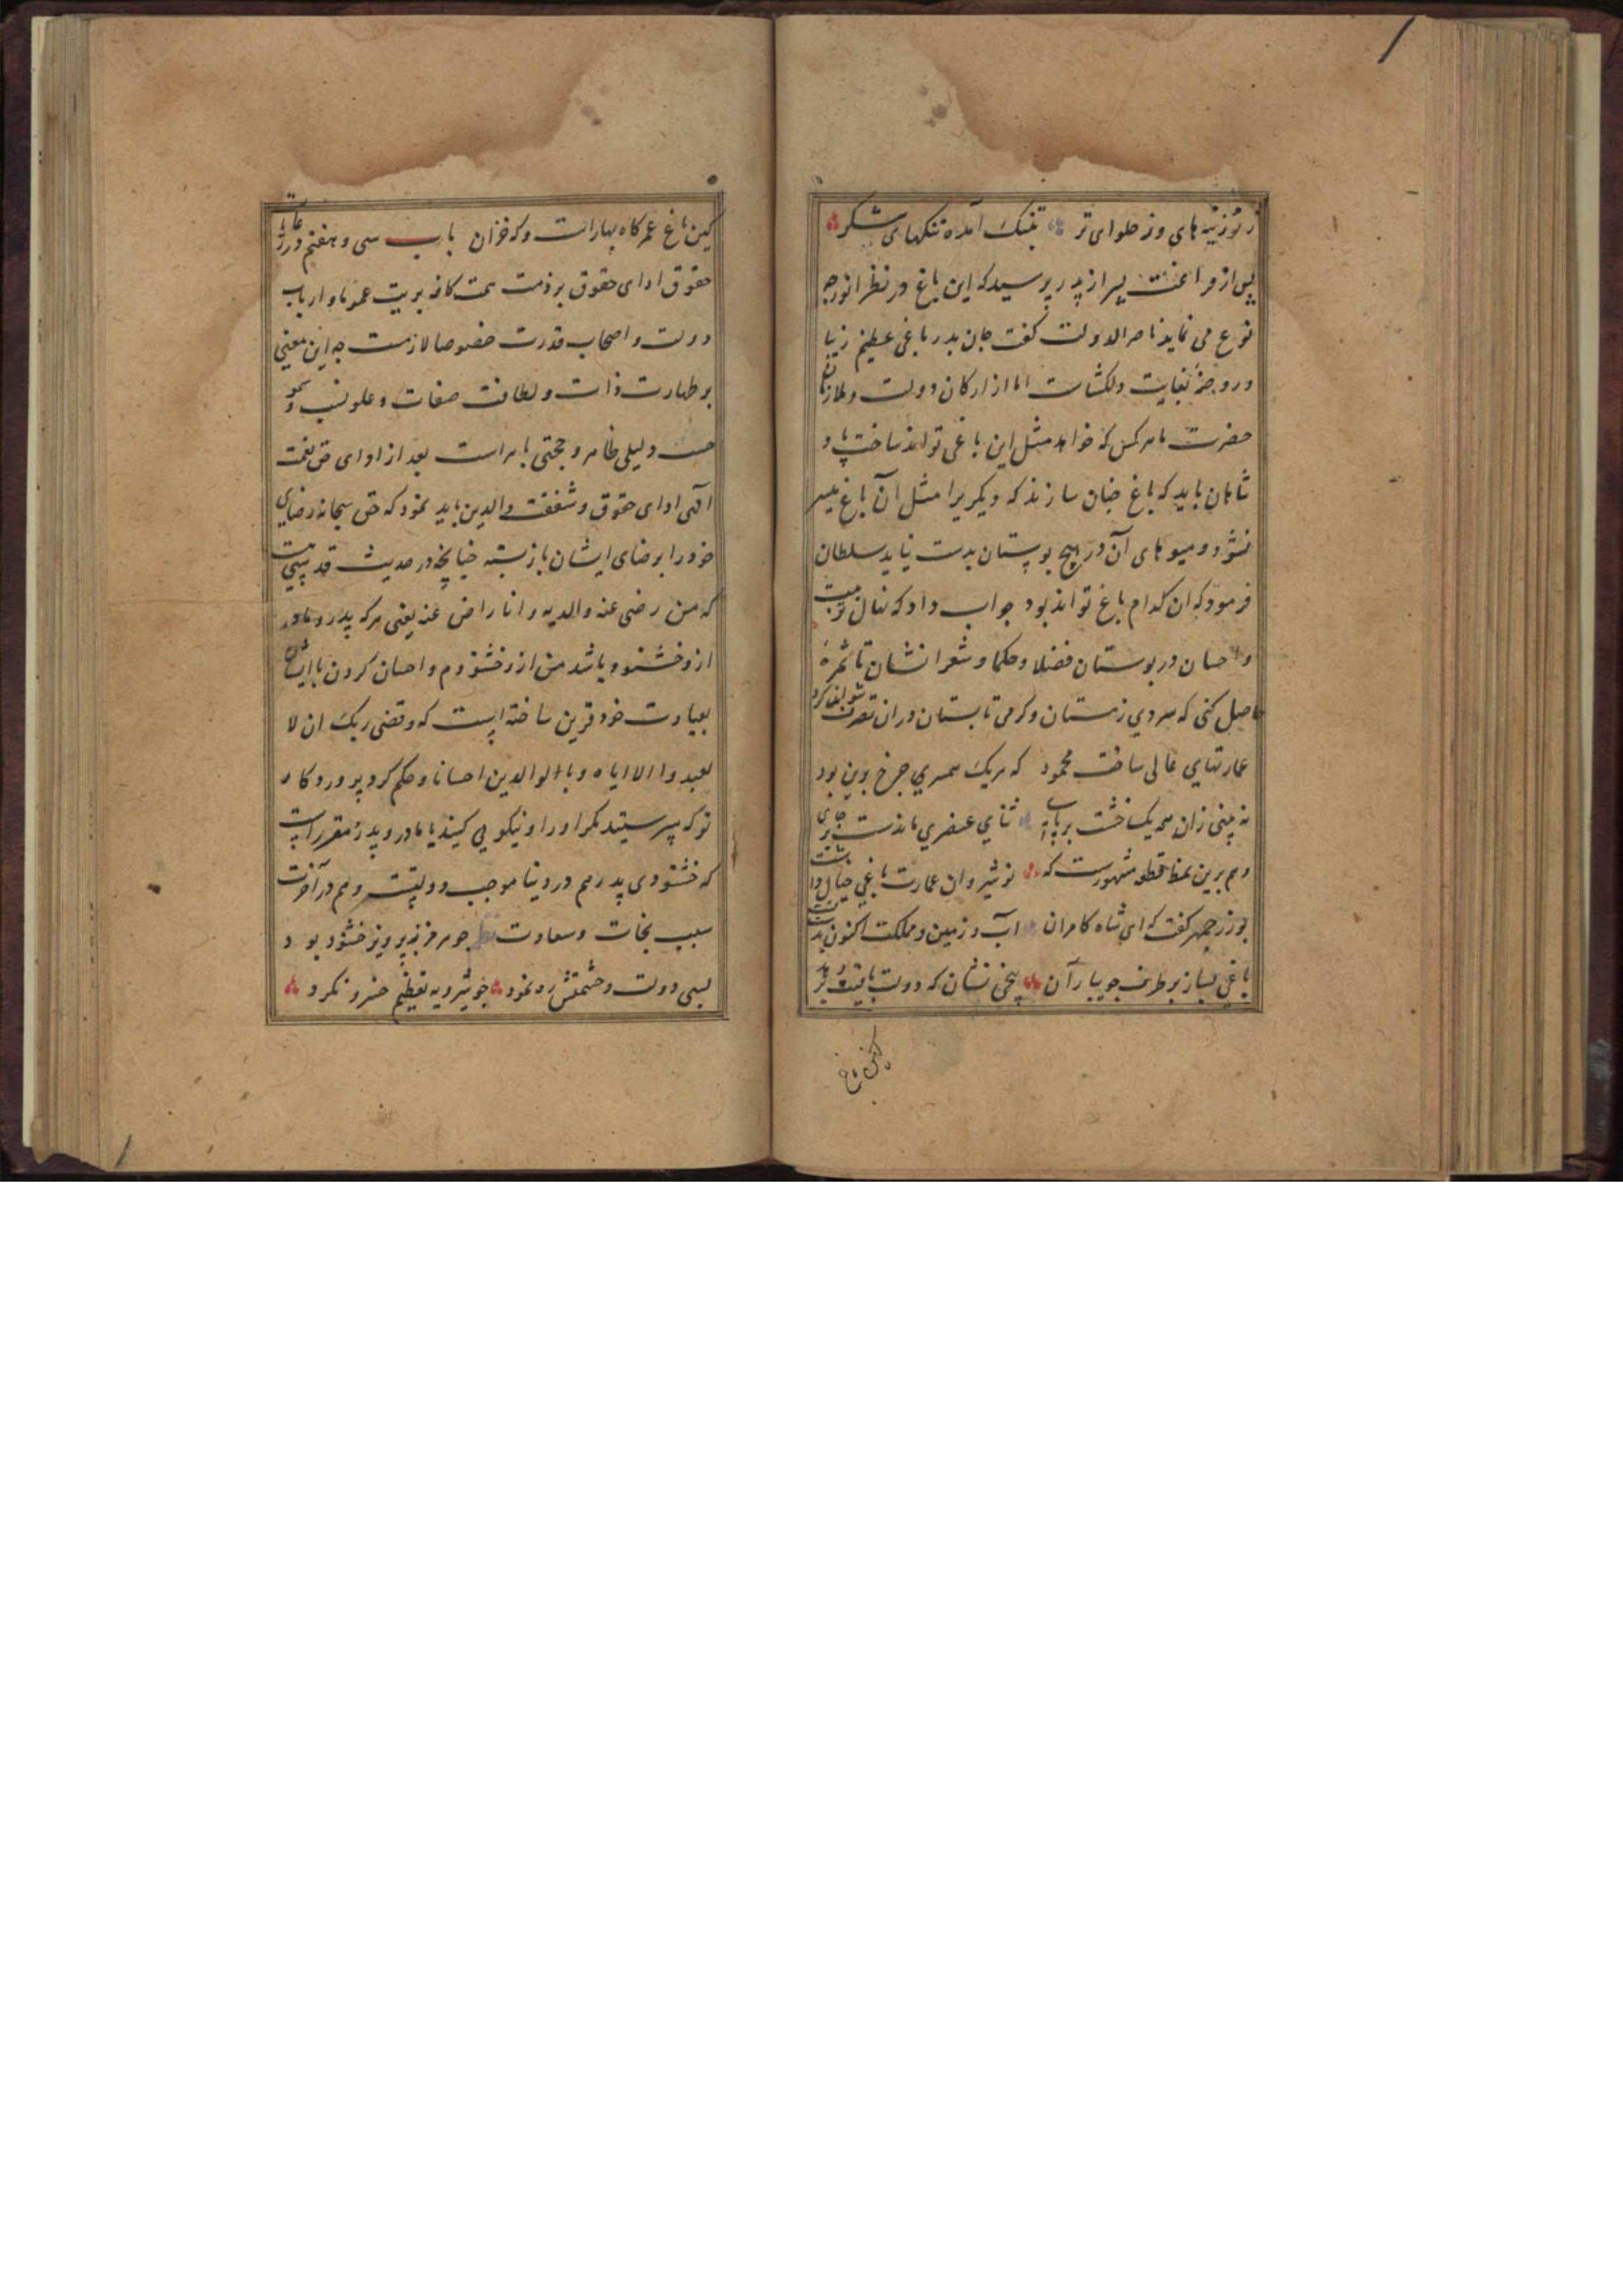 ز لوزینه های وز حلوای تر بتنک آمده تنکهای شکر
پس از فراغت پسر از پدر پرسید که این باغ در نظر انور چه
نوع می نماید ناصر الدولت گفت جان پدر باغی عظیم زیبا
و روضهٔ بغایت دلکشاست اما از ارکان دولت و ملازمان
حضرت ما هر کس که خواهد مثل این باغی تواند ساخت پاد
شاهان باید که باغ چنان سازند که دیگریرا مثل آن باغ میسر
نشود و میوهای آن در هیچ بوستان بدست نیاید سلطان
فرمود که ان کدام باغ تواند بود جواب داد که نهال تربیت
و احسان در بوستان فضلا و حکما و شعرا نشان تا ثمرهٔ
حاصل کنی که سردی زمستان و گرمی تابستان در ان تصرف نتواند کرد
عمارتهای عالی ساخت محمود که هریک همسری چرخ برین بود
نه بینی زان همه یک خشت بر پای ثنای عنصری ماندست بر جای
و هم برین نمط قطعه مشهورست که نوشیروان عمارت باغی خیال داشت
بوزرجمهر گفت که ای شاه کامران آب و زمین و مملکت اکنون بدست تست
باغی بساز بر طرف جویبار آن بیخی نشان که دولت باقیت بر دهد
کین باغ
کین باغ عمر گاه بهارست و گه خزان باب سی و هفتم در رعایت
حقوق ادای حقوق بر ذمت همت کافه بریت عموما و ارباب
دولت و اصحاب قدرت خصوصا لازمست چه این معنی
بر طهارت ذات و لطافت صفات و علو نسب و سمو
حسب دلیلی ظاهر و حجتی باهر است بعد از ادای حق نعمت
الهی ادای حقوق و شفقت والدین باید نمود که حق سبحانه رضای
خود را برضای ایشان باز بسته چنانچه در حدیث قدسیست
که من رضی عنه والدیه و انا راض عنه یعنی هر که پدر و مادر
از و خشنود باشد من از و خشنودم و احسان کردن با ایشان
بعبادت خود قرین ساخته است که و قضی ربک ان لا
تعبدوا الا ایاه و با الوالدین احسانا و حکم کرد پروردکار
تو که نپرستید مکر او را و نیکویی کنید با مادر و پدر مقررست
که خشنودی پدر هم در دنیا موجب دولتیست و هم در آخرت
سبب نجات و سعادت چو هرمز ز پرویز خشنود بود
بسی دولت و حشمتش ره نمود چو شیرویه تعظیم خسرو نکرد